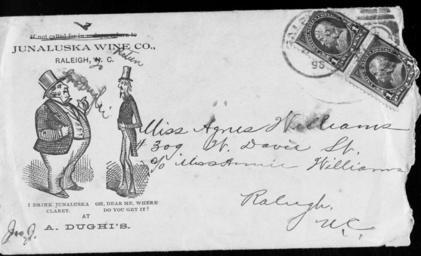 If not called for in
JUNALUSKA WINE CO.,
RALEIGH, N. C.
Miss Agnes Williams
309 W. Davie St.
c/o Miss Annie Williams
Raleigh,
N.C.
I DRINK JUNALUSKA
CLARET.
OH, DEAR ME, WHERE
DO YOU GET IT?
AT
A. DUGHI'S.